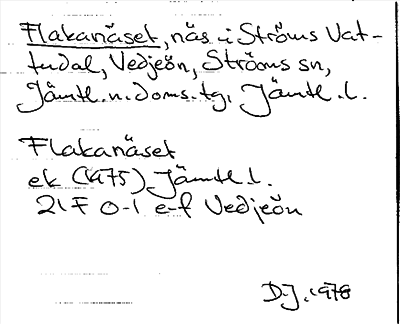 Flakanäset, näs i Ströms Vat-
tudal, Vedjeön, Ströms sn,
Jämtl. n. doms. tg, Jämtl. l.
Flakanäset
ek (1475) Jämtl. l.
21F 0-1 e-f Vedjeön
D.J. 1978